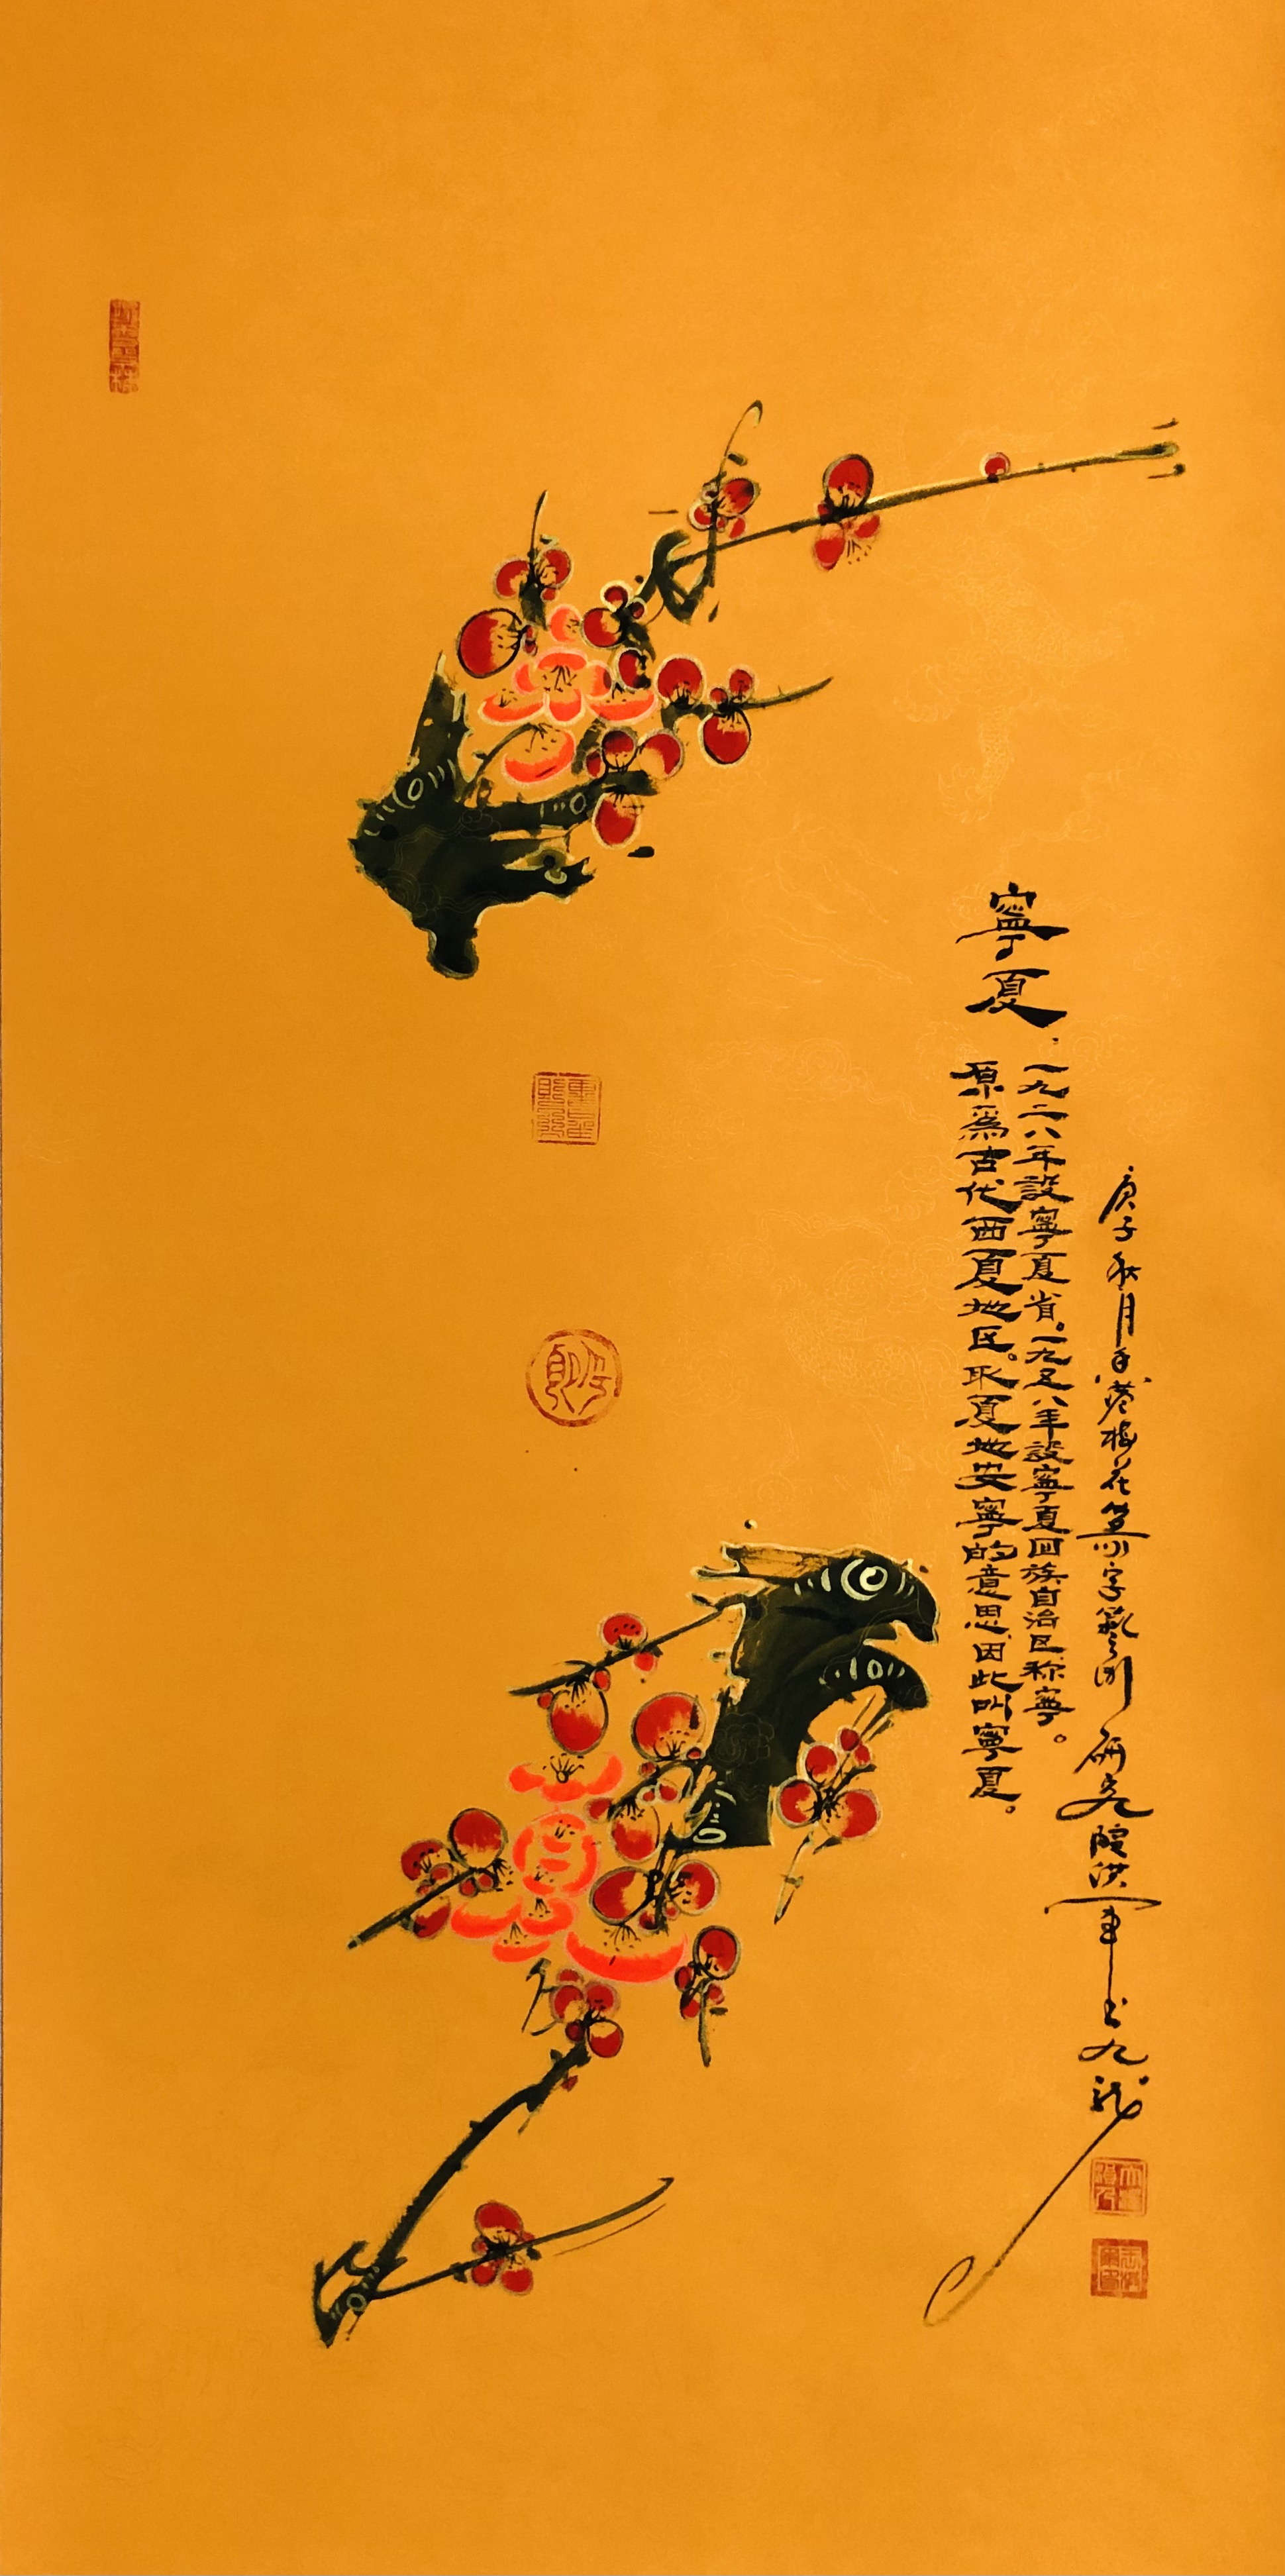 寧夏．
一九二八年設寧夏省。一九五八年設寧夏回族自治区，称寧。
原為古代西夏地区。取夏地安寧的意思，因此叫寧夏。
庚子秋月香港梅花篆字藝術研究院洪軍書九龍